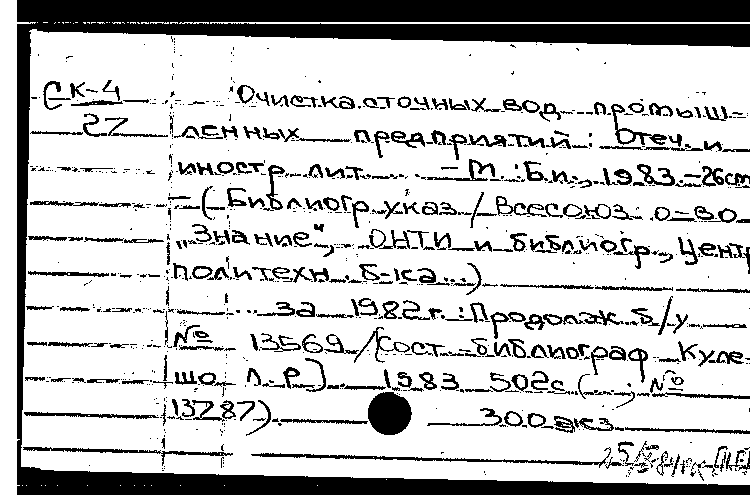 СК-4
27
Очистка сточных вод промыш-
ленных предприятий: Отеч. и
иностр лит... – М.: Б.и., 1983. – 26cm
– (Библиогр. указ / Всесоюз. о-во
„Знание", ОНТИ и библиогр., Центр
политехн. б-ка...)
... за 1982 г.: Продолж. б/у
№ 13569 / [сост. библиограф Куле-
шо Л.Р.]. 1983 502с (...; №
13787). 300 экз